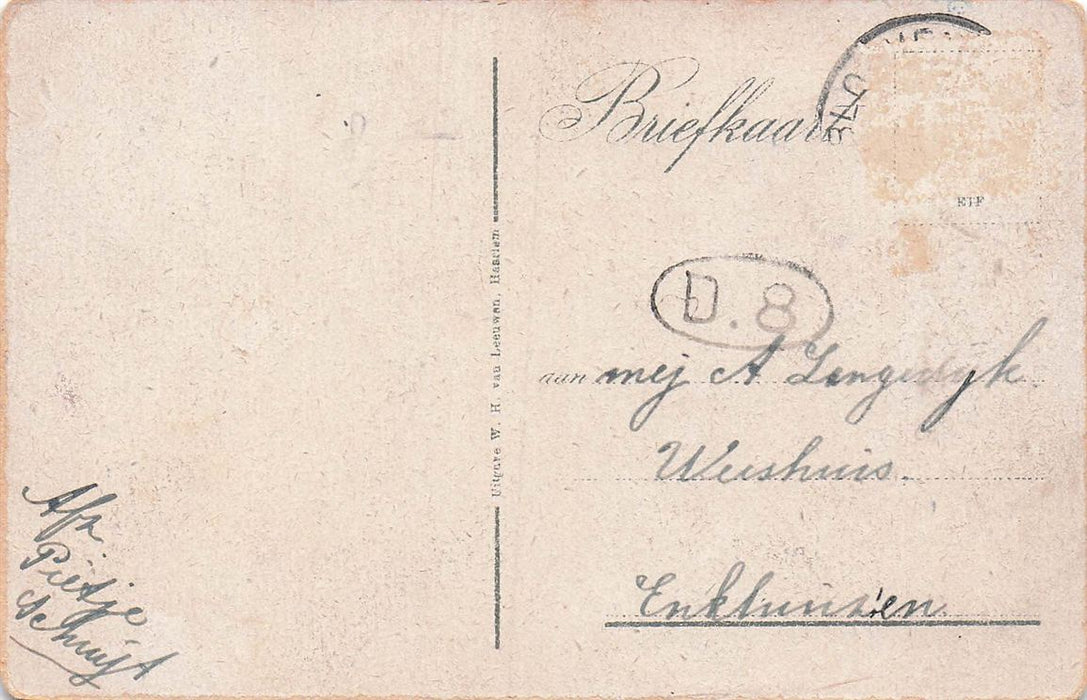 Briefkaart
ETF
D. 8
aan mej A Lengedyk
Weishuis.
Enkhuizen
Uitgave W. H. van Leeuwen, Haarlem
Afz.
Pietje
Schuijt